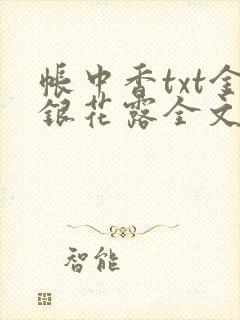 帐中香txt金
银花露全文
智能